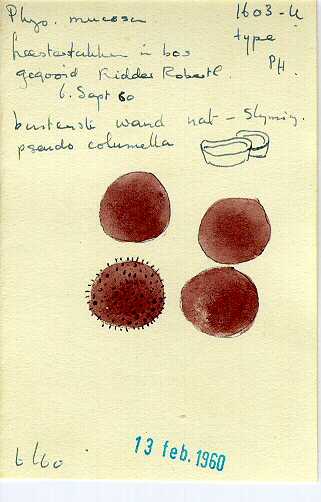 Phys. mucosa 1603-U
type
heestertakken in bos PH.
gegooid Ridder Robertl.
6. Sept 60
buitenste wand nat - slymig.
pseudo columella
6/60
13 feb. 1960